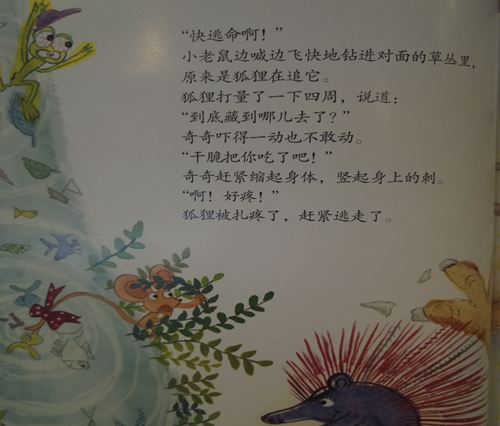 “快逃命啊！”
小老鼠边喊边飞快地钻进对面的草丛里，
原来是狐狸在追它。
狐狸打量了一下四周，说道：
“到底藏到哪儿去了？”
奇奇吓得一动也不敢动。
“干脆把你吃了吧！”
奇奇赶紧缩起身体，竖起身上的刺。
“啊！好疼！”
狐狸被扎疼了，赶紧逃走了。